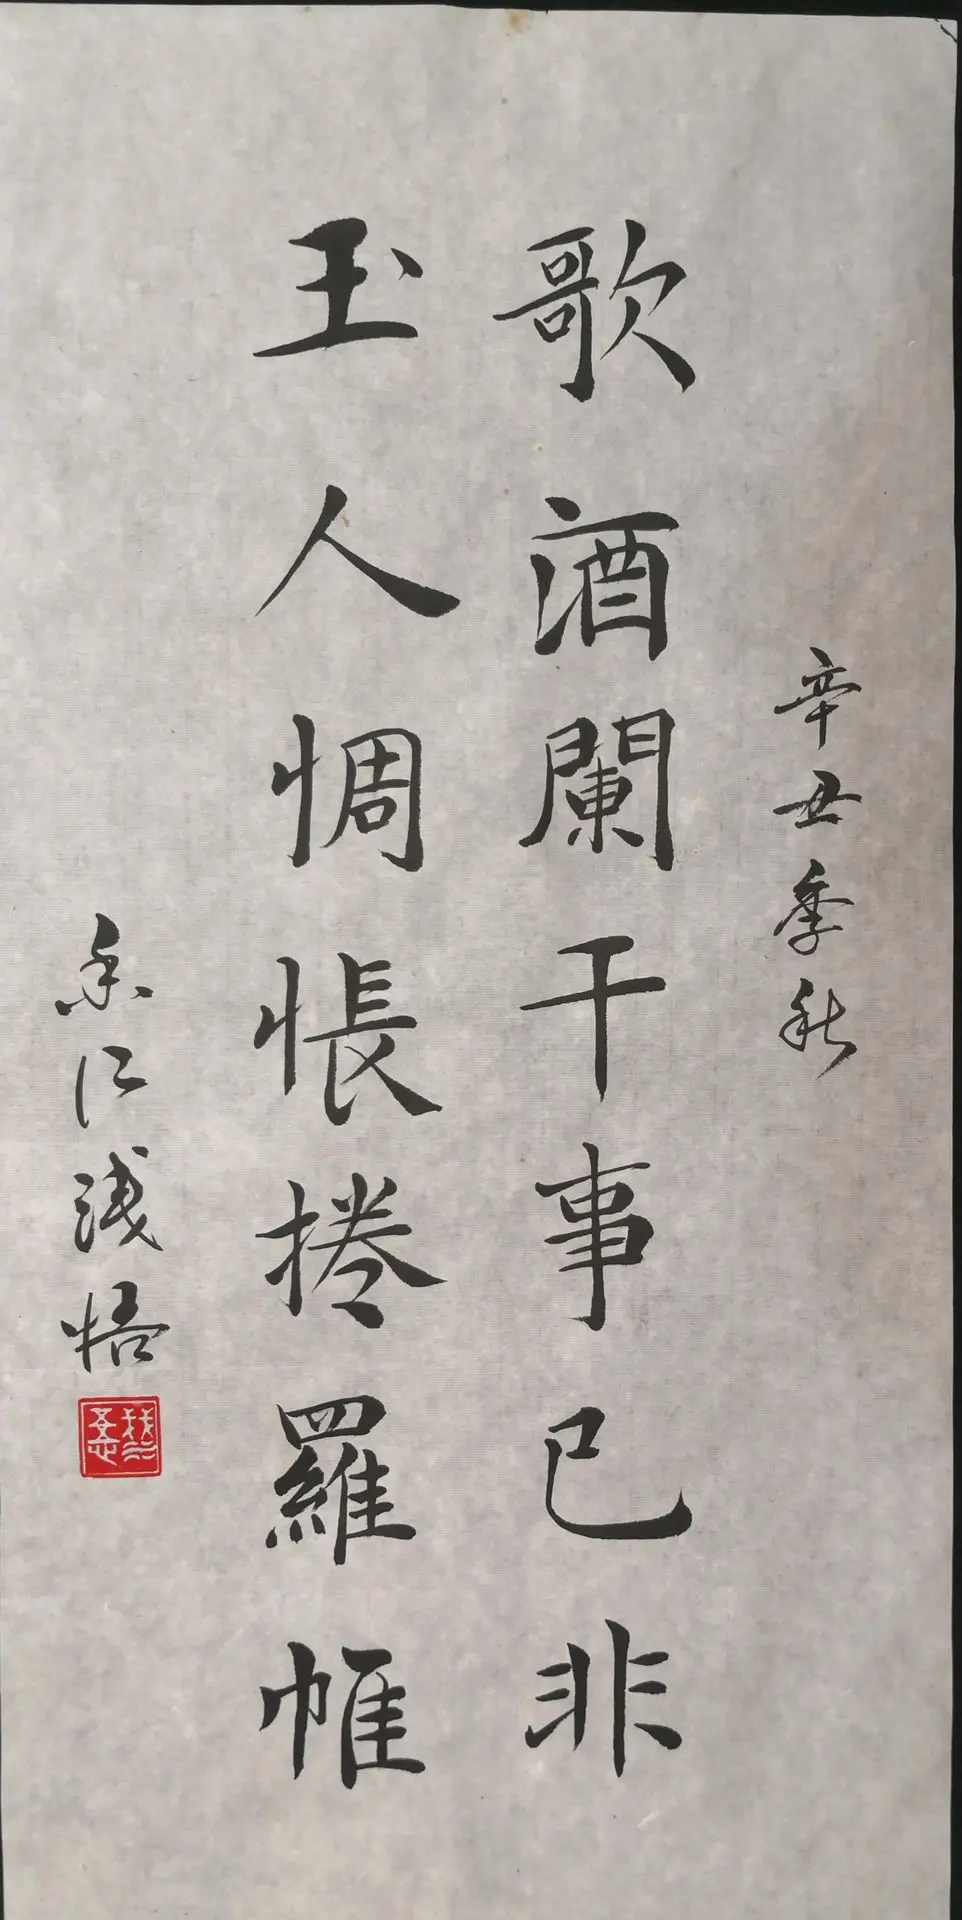 辛丑季秋
歌酒闌干事已非
玉人惆悵捲羅帷
香江浅悟